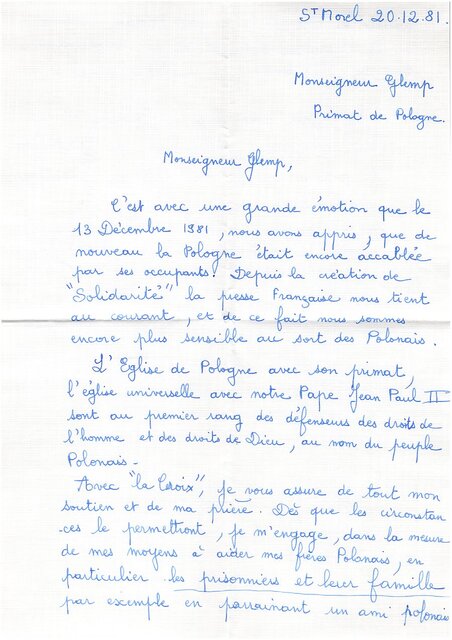 St Morel 20.12.81.
Monseigneur Glemp
Primat de Pologne.
Monseigneur Glemp,
C'est avec une grande émotion que le
13 Décembre 1981, nous avons appris, que de
nouveau la Pologne était encore accablée
par ses occupants! Depuis la création de
"Solidarité" la presse Française nous tient
au courant, et de ce fait nous sommes
encore plus sensible au sort des Polonais.
L'Eglise de Pologne avec son primat,
l'église universelle avec notre Pape Jean Paul II
sont au premier rang des défenseurs des droits de
l'homme et des droits de Dieu, au nom du peuple
Polonais.
Avec "la Croix", je vous assure de tout mon
soutien et de ma prière. Dès que les circonstan
-ces le permettront, je m'engage, dans la mesure
de mes moyens à aider mes frères Polonais, en
particulier les prisonniers et leur famille
par exemple en parrainant un ami polonais